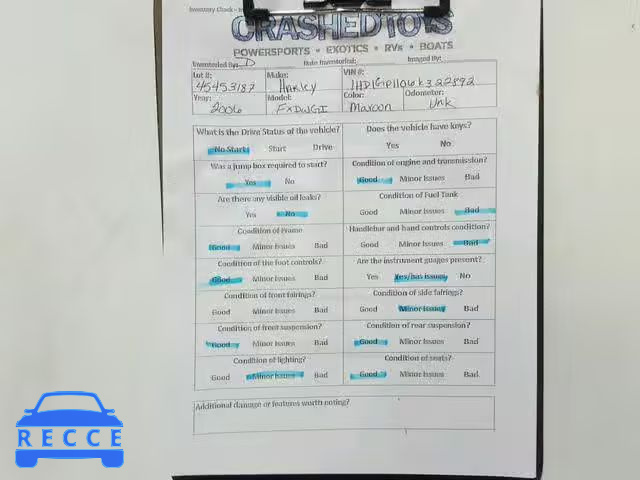 CRASHEDTOYS
POWERSPORTS • EXOTICS • RVs • BOATS
Inventoried By: D Date Inventoried: Imaged By:
Lot #: Make: VIN #:
45453187 Harley 1HD1GP1106K322892
Year: Model: Color: Odometer:
2006 FXDWGI Maroon Unk
What is the Drive Status of the vehicle? Does the vehicle have keys?
No Start Start Drive Yes No
Was a jump box required to start? Condition of engine and transmission?
Yes No Good Minor Issues Bad
Are there any visible oil leaks? Condition of Fuel Tank
Yes No Good Minor Issues Bad
Condition of Frame Handlebar and hand controls condition?
Good Minor Issues Bad Good Minor Issues Bad
Condition of the foot controls? Are the instrument guages present?
Good Minor Issues Bad Yes Yes/has issues No
Condition of front fairings? Condition of side fairings?
Good Minor Issues Bad Good Minor Issues Bad
Condition of front suspension? Condition of rear suspension?
Good Minor Issues Bad Good Minor Issues Bad
Condition of lighting? Condition of seats?
Good Minor Issues Bad Good Minor Issues Bad
Additional damage or features worth noting?
RECCE